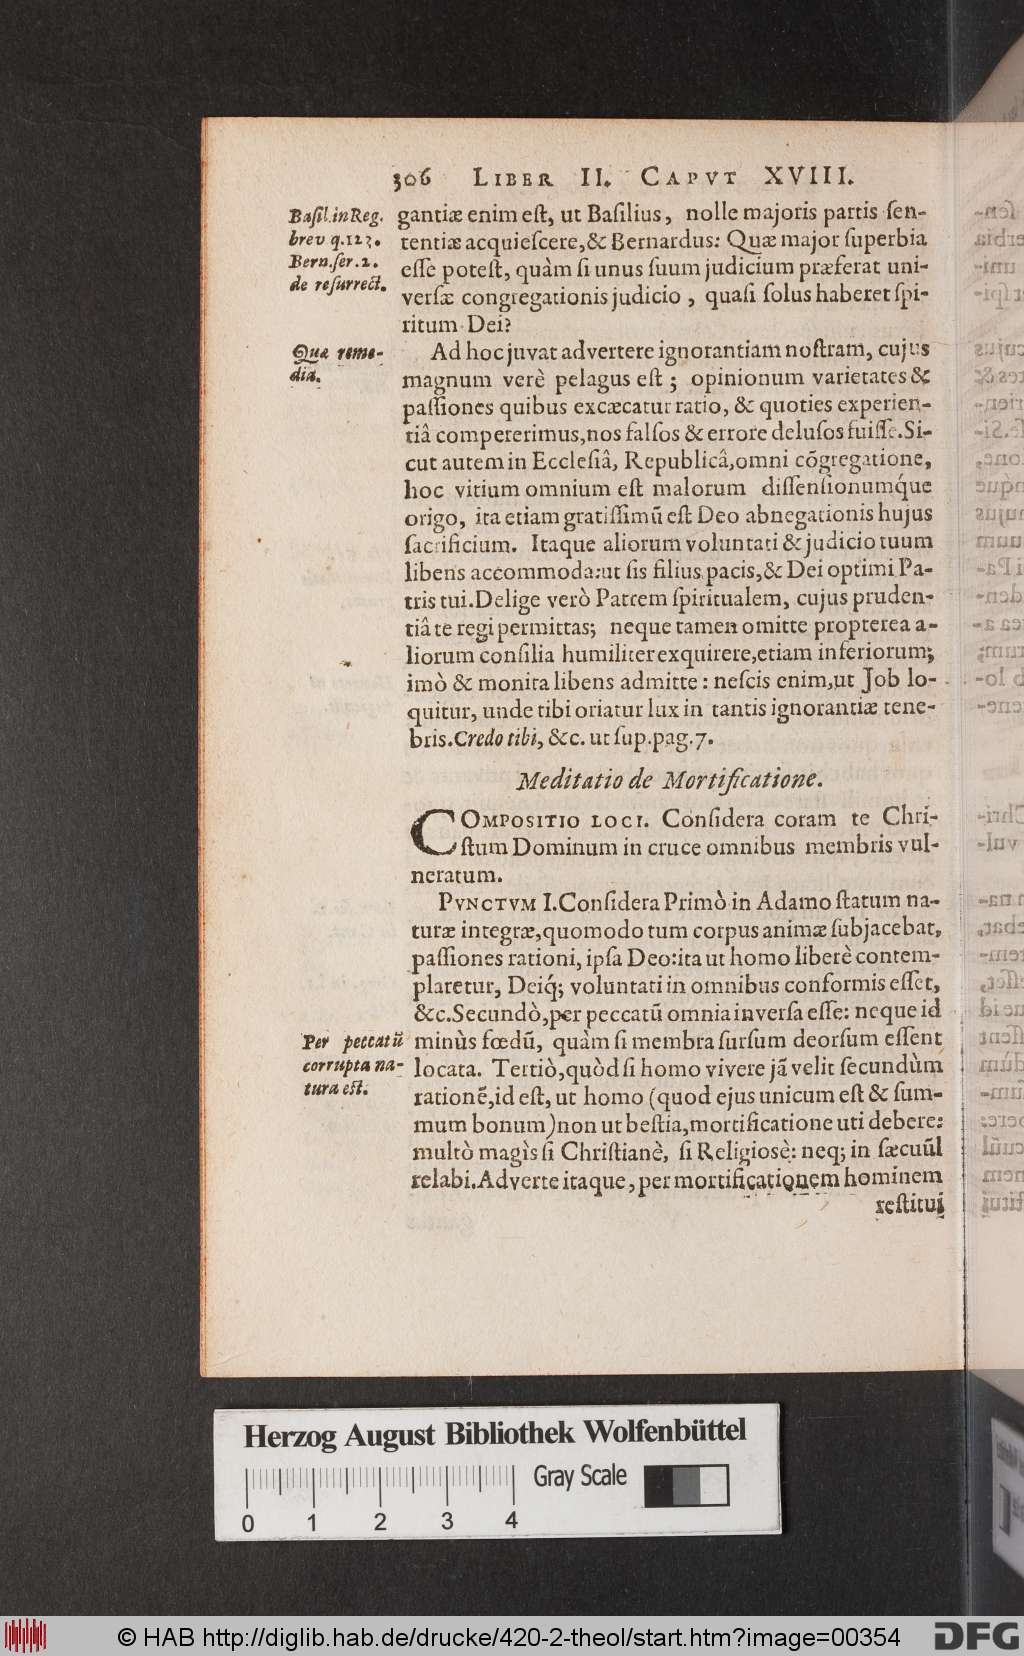 306 LIBER II. CAPVT XVIII.
Baſil. in Reg.
brev q. 123.
Bern. ſer. 2.
de reſurrect.
gantiæ enim eſt, ut Baſilius, nolle majoris partis ſen-
tentiæ acquieſcere, & Bernardus: Quæ major ſuperbia
eſſe poteſt, quàm ſi unus ſuum judicium præferat uni-
verſæ congregationis judicio, quaſi ſolus haberet ſpi-
ritum Dei?
Quæ reme-
dia.
Ad hoc juvat advertere ignorantiam noſtram, cujus
magnum verè pelagus eſt; opinionum varietates &
paſſiones quibus excæcatur ratio, & quoties experien-
tiâ compererimus, nos falſos & errore deluſos fuiſſe. Si-
cut autem in Eccleſiâ, Republicâ, omni cõgregatione,
hoc vitium omnium eſt malorum diſſenſionumq́ue
origo, ita etiam gratiſſimũ eſt Deo abnegationis hujus
ſacrificium. Itaque aliorum voluntati & judicio tuum
libens accommoda: ut ſis filius pacis, & Dei optimi Pa-
tris tui. Delige verò Patrem ſpiritualem, cujus pruden-
tiâ te regi permittas; neque tamen omitte propterea a-
liorum conſilia humiliter exquirere, etiam inferiorum;
imò & monita libens admitte: neſcis enim, ut Job lo-
quitur, unde tibi oriatur lux in tantis ignorantiæ tene-
bris. Credo tibi, &c. ut ſup. pag. 7.
Meditatio de Mortificatione.
COMPOSITIO LOCI. Conſidera coram te Chri-
ſtum Dominum in cruce omnibus membris vul-
neratum.
PVNCTVM I. Conſidera Primò in Adamo ſtatum na-
turæ integræ, quomodo tum corpus animæ ſubjacebat,
paſſiones rationi, ipſa Deo: ita ut homo liberè contem-
plaretur, Deiq́; voluntati in omnibus conformis eſſet,
&c. Secundò, per peccatũ omnia inverſa eſſe: neque id
Per peccatũ
corrupta na-
tura eſt.
minùs fœdũ, quàm ſi membra ſurſum deorſum eſſent
locata. Tertiò, quòd ſi homo vivere jã velit ſecundùm
rationẽ, id eſt, ut homo (quod ejus unicum eſt & ſum-
mum bonum) non ut beſtia, mortificatione uti debere:
multò magìs ſi Chriſtianè, ſi Religiosè: neq; in ſæcuũl
relabi. Adverte itaque, per mortificationem hominem
reſtitui
Herzog August Bibliothek Wolfenbüttel
Gray Scale
0 1 2 3 4
© HAB http://diglib.hab.de/drucke/420-2-theol/start.htm?image=00354
DFG